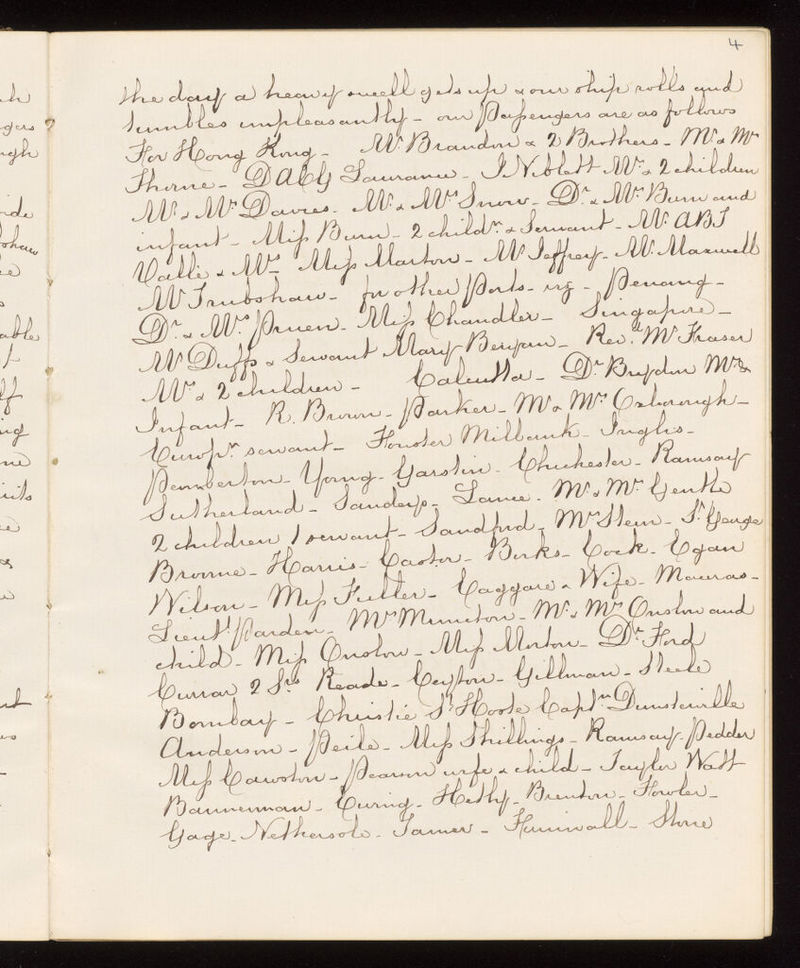 4
the day a heavy swell gets up & our ship rolls and
tumbles unpleasantly - our Passengers are as follows
For Hong Kong - Mr. Brandon & 2 Brothers - Mr. & Mrs
Thorne - D Laurance - J Niblett Mrs. & 2 children
Mr. & Mrs Davies. Mr. & Mrs Snow - Dr. & Mrs Burn and
infant - Miss Burn - 2 childn. & Servant - Mr. A B T
Valle & Mrs - Miss Marton - Mr Jeffrey - Mr. Maxwell
Mr Trubshaw - for other Ports - vig - Penang -
Dr. & Mrs. Pruen - Miss Chandler - Singapore -
Mr Duffs & Servant Mary Benyan - Revd. Mr Fraser
Mrs & 2 children - Calcutta - Dr Brydon Mrs &
Infant - R. Brown - Parker - Mr & Mrs Oxborough -
Europn. servant - Milbank - Inglis -
Pemberton - Young - Garstin - Chichester - Ramsay
Sutherland - Sanders - Lance - Mr. & Mrs. Gentle
2 children 1 servant - Sandford - Mrs Stein - St. George
Broome - Harris - Castor - Birks - Cock - Egan
Wilson - Miss Fuller - Caggare & Wife - Mauras -
Lieut. Parden - Mrs Muniton - Mr. & Mrs Onslow and
child - Miss Onslow - Miss Morton - Dr. Ford
Currar 2 Srs Reade - Ceyton - Gillman - Steele
Bombay - Christie St Hoste Captn. Dunsterville
Anderson - Peile - Miss Shillings - Ramsay - Pedder
Miss Cawston - Pearson wife & child - Taylor Watt
Bannerman - Curing - Hethy - Brenton - Fowler -
Gage - Nethersole - Tamer - Furnivall - Stone